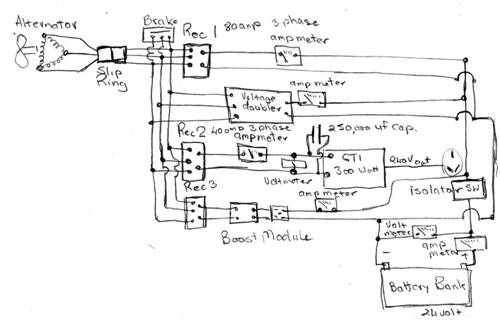 Alternator
Brake
Rec 1 80amp 3 phase
ampmeter
Slip
Ring
Voltage
doubler
ampmeter
Rec2 400mp 3 phase
ampmeter
250,000 uf cap.
GTI
300 Watt
240V out
Voltmeter
Rec 3
ampmeter
isolator SW
Boost Module
Volt
meter
amp
meter
- +
Battery Bank
24 volt